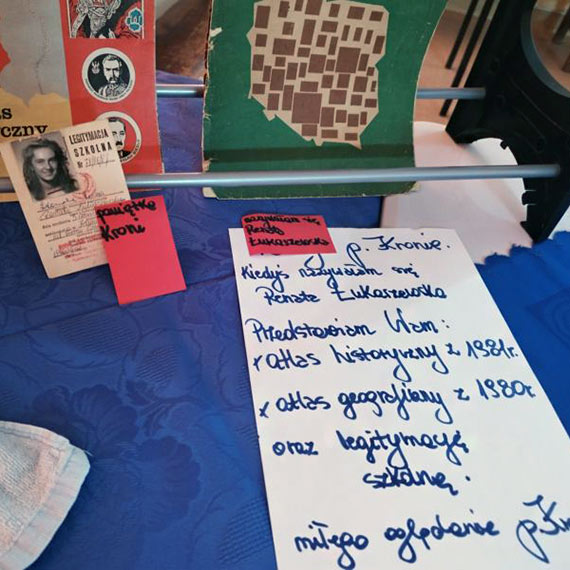 s
yczny
LEGITYMACJA
SZKOLNA
Nr
pamiątka
Kroni
nazywam się
Renata
Łukaszewska
p. Kronie.
Kiedyś nazywałam się
Renata Łukaszewska
Przedstawiam Wam:
x atlas historyczny z 1981r.
x atlas geografiany z 1980r
oraz legitymację
szkolną.
miłego oglądanie p. Kro